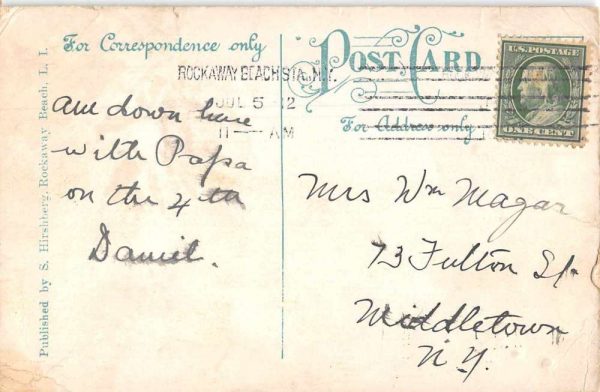 For Correspondence only
POST CARD
U.S. POSTAGE
ONE CENT
ROCKAWAY BEACH STA. N.Y.
JUL 5 12
11 — AM
For Address only
Am down here
with Papa
on the 4th
Daniel.
Mrs Wm Magar
73 Fulton St.
Middletown
N.Y.
Published by S. Hirshberg, Rockaway Beach, L. I.